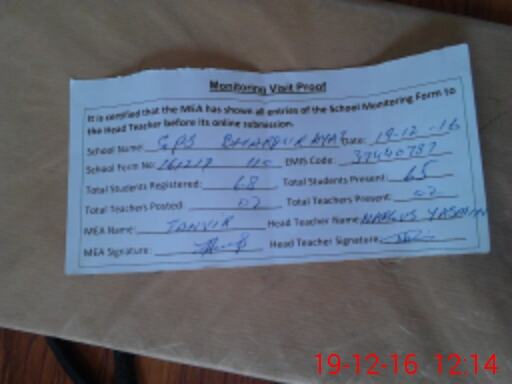 Monitoring Visit Proof
It is certified that the MEA has shown all entries of the School Monitoring Form to
the Head Teacher before its online submission.
School Name: GPS Date: 19-12-16
School Form No: EMIS Code: 37440787
Total Students Registered: 68 Total Students Present: 65
Total Teachers Posted: 02 Total Teachers Present: 02
MEA Name: TANVIR Head Teacher Name: NARGUS YASMIN
MEA Signature: Head Teacher Signature:
19-12-16 12:14